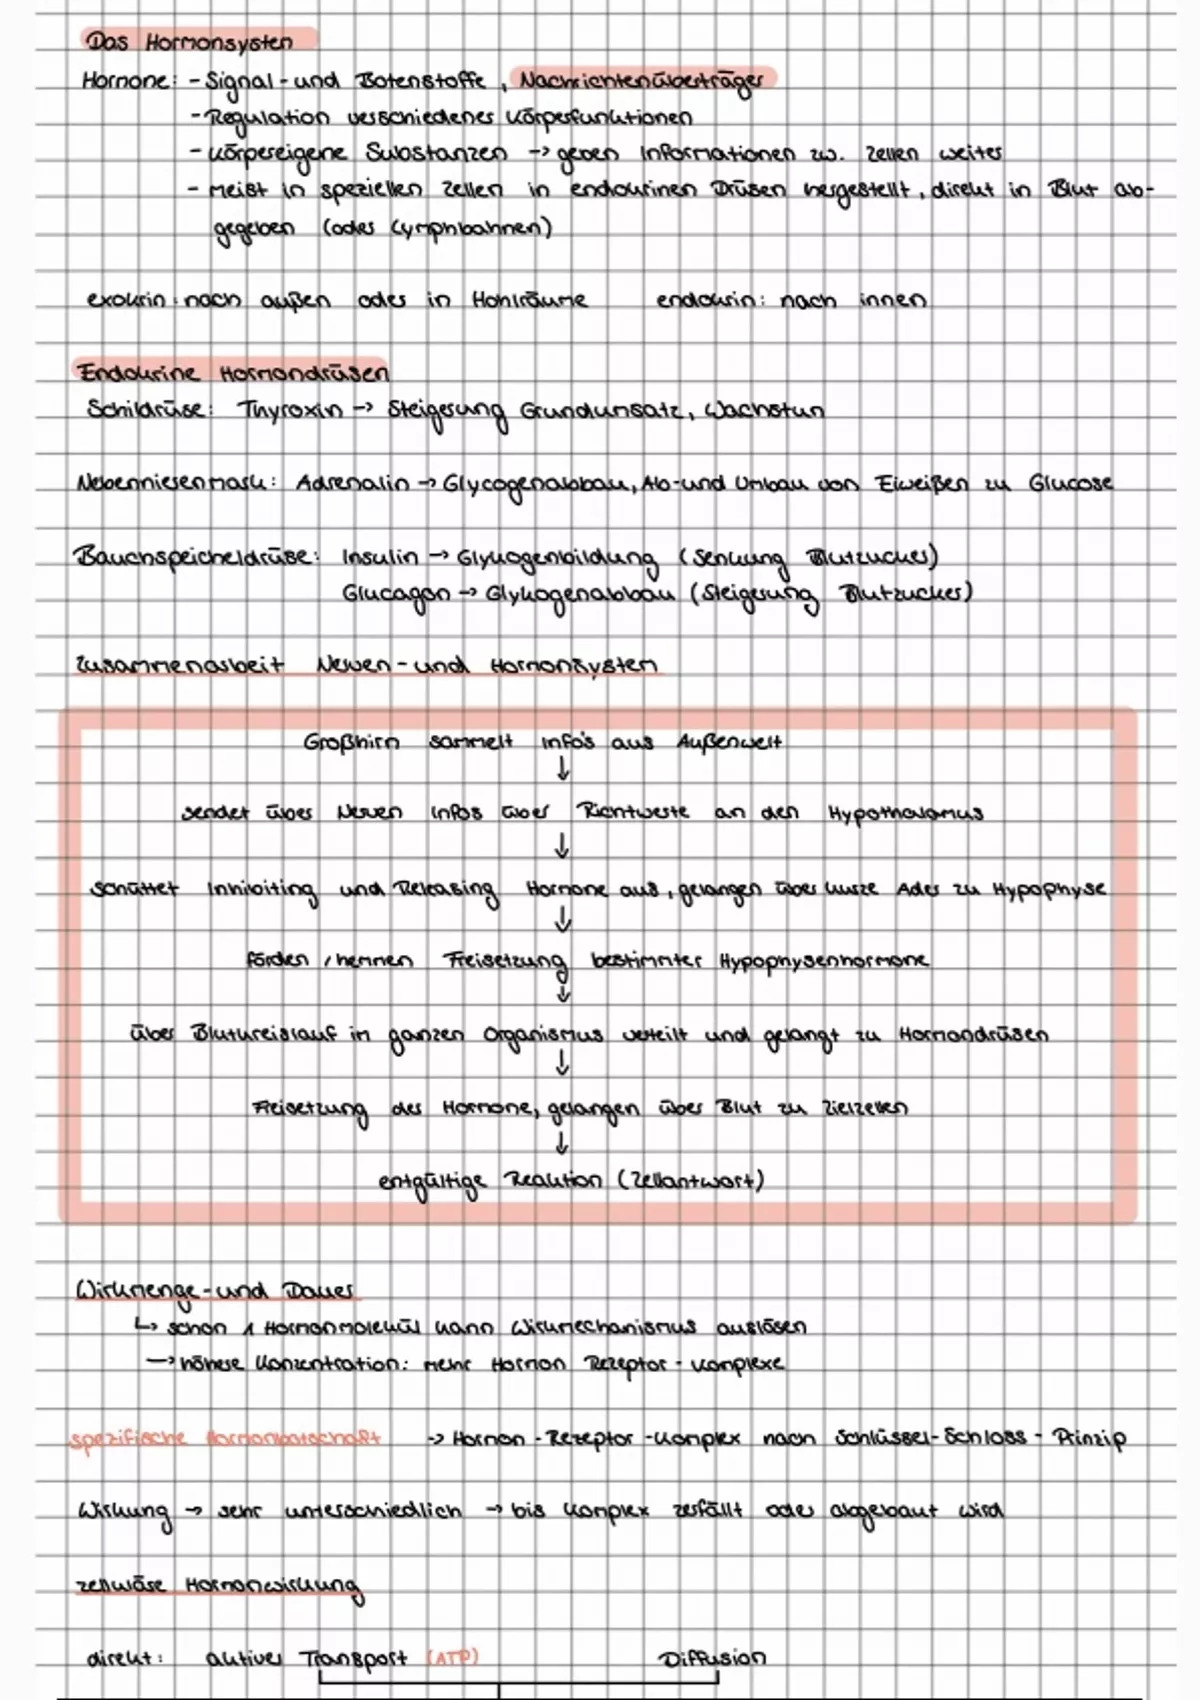 Das Hormonsystem
Hormone: - Signal- und Botenstoffe, Nachrichtenüberträger
- Regulation verschiedener Körperfunktionen
- körpereigene Substanzen -> geben Informationen zw. Zellen weiter
- meist in speziellen Zellen in endokrinen Drüsen hergestellt, direkt in Blut ab-
gegeben (oder Lymphbahnen)
exokrin: nach außen oder in Hohlräume endokrin: nach innen
Endokrine Hormondrüsen
Schildrüse: Thyroxin -> Steigerung Grundumsatz, Wachstum
Nebennierenmark: Adrenalin -> Glycogenabbau, Ab- und Umbau von Eiweißen zu Glucose
Bauchspeicheldrüse: Insulin -> Glykogenbildung (Senkung Blutzucker)
Glucagon -> Glykogenabbau (Steigerung Blutzucker)
Zusammenarbeit Nerven- und Hormonsystem
Großhirn sammelt Info's aus Außenwelt
↓
sendet über Nerven Infos über Richtwerte an den Hypothalamus
↓
schüttet Inhibiting und Releasing Hormone aus, gelangen über kurze Ader zu Hypophyse
↓
fördern / hemmen Freisetzung bestimmter Hypophysenhormone
↓
über Blutkreislauf im ganzen Organismus verteilt und gelangt zu Hormondrüsen
↓
Freisetzung der Hormone, gelangen über Blut zu Zielzellen
↓
entgültige Reaktion (Zellantwort)
Wirkmenge- und Dauer
↳ schon 1 Hormonmolekül kann Wirkmechanismus auslösen
-> höhere Konzentration: mehr Hormon Rezeptor-Komplexe
spezifische Hormonbotschaft -> Hormon-Rezeptor-Komplex nach Schlüssel-Schloss-Prinzip
Wirkung -> sehr unterschiedlich -> bis Komplex zerfällt oder abgebaut wird
zelluäre Hormonwirkung
direkt: aktiver Transport (ATP) Diffusion